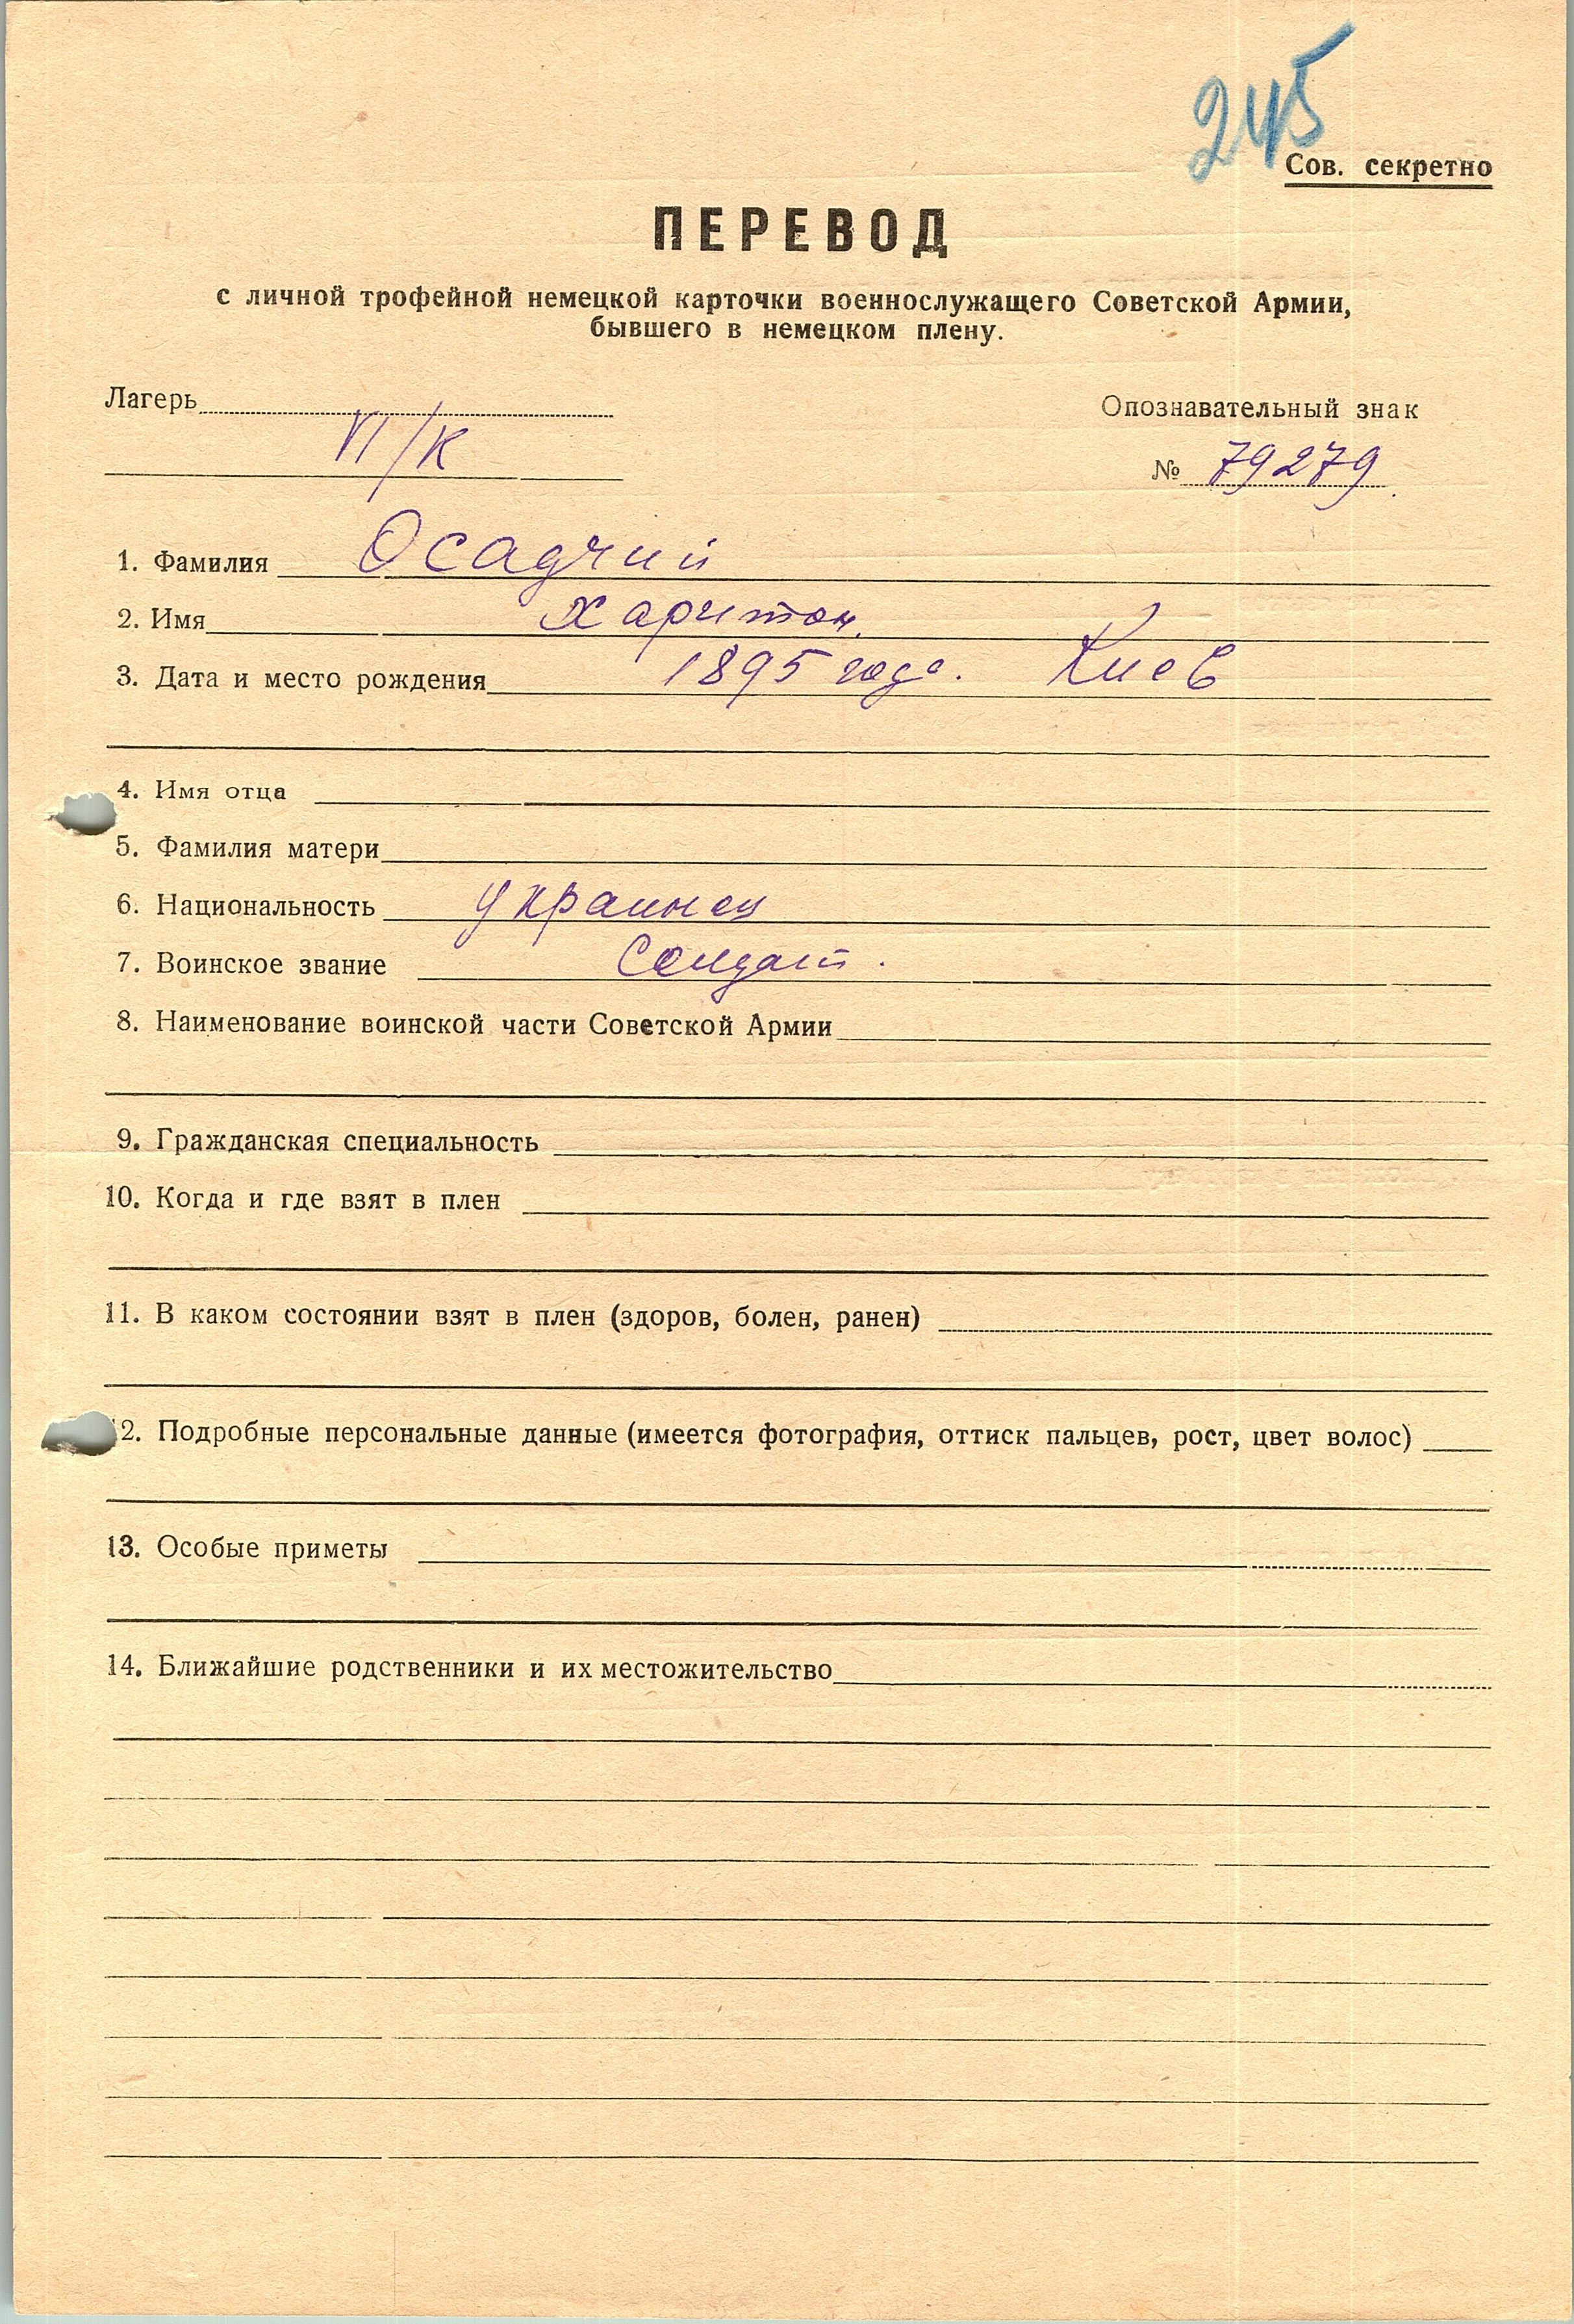 245
Сов. секретно
ПЕРЕВОД
с личной трофейной немецкой карточки военнослужащего Советской Армии,
бывшего в немецком плену.
Лагерь
VI/К
Опознавательный знак
№ 79279
1. Фамилия Осадчий
2. Имя Харитон
3. Дата и место рождения 1895 года. Киев
4. Имя отца
5. Фамилия матери
6. Национальность украинец
7. Воинское звание Солдат.
8. Наименование воинской части Советской Армии
9. Гражданская специальность
10. Когда и где взят в плен
11. В каком состоянии взят в плен (здоров, болен, ранен)
12. Подробные персональные данные (имеется фотография, оттиск пальцев, рост, цвет волос)
13. Особые приметы
14. Ближайшие родственники и их местожительство